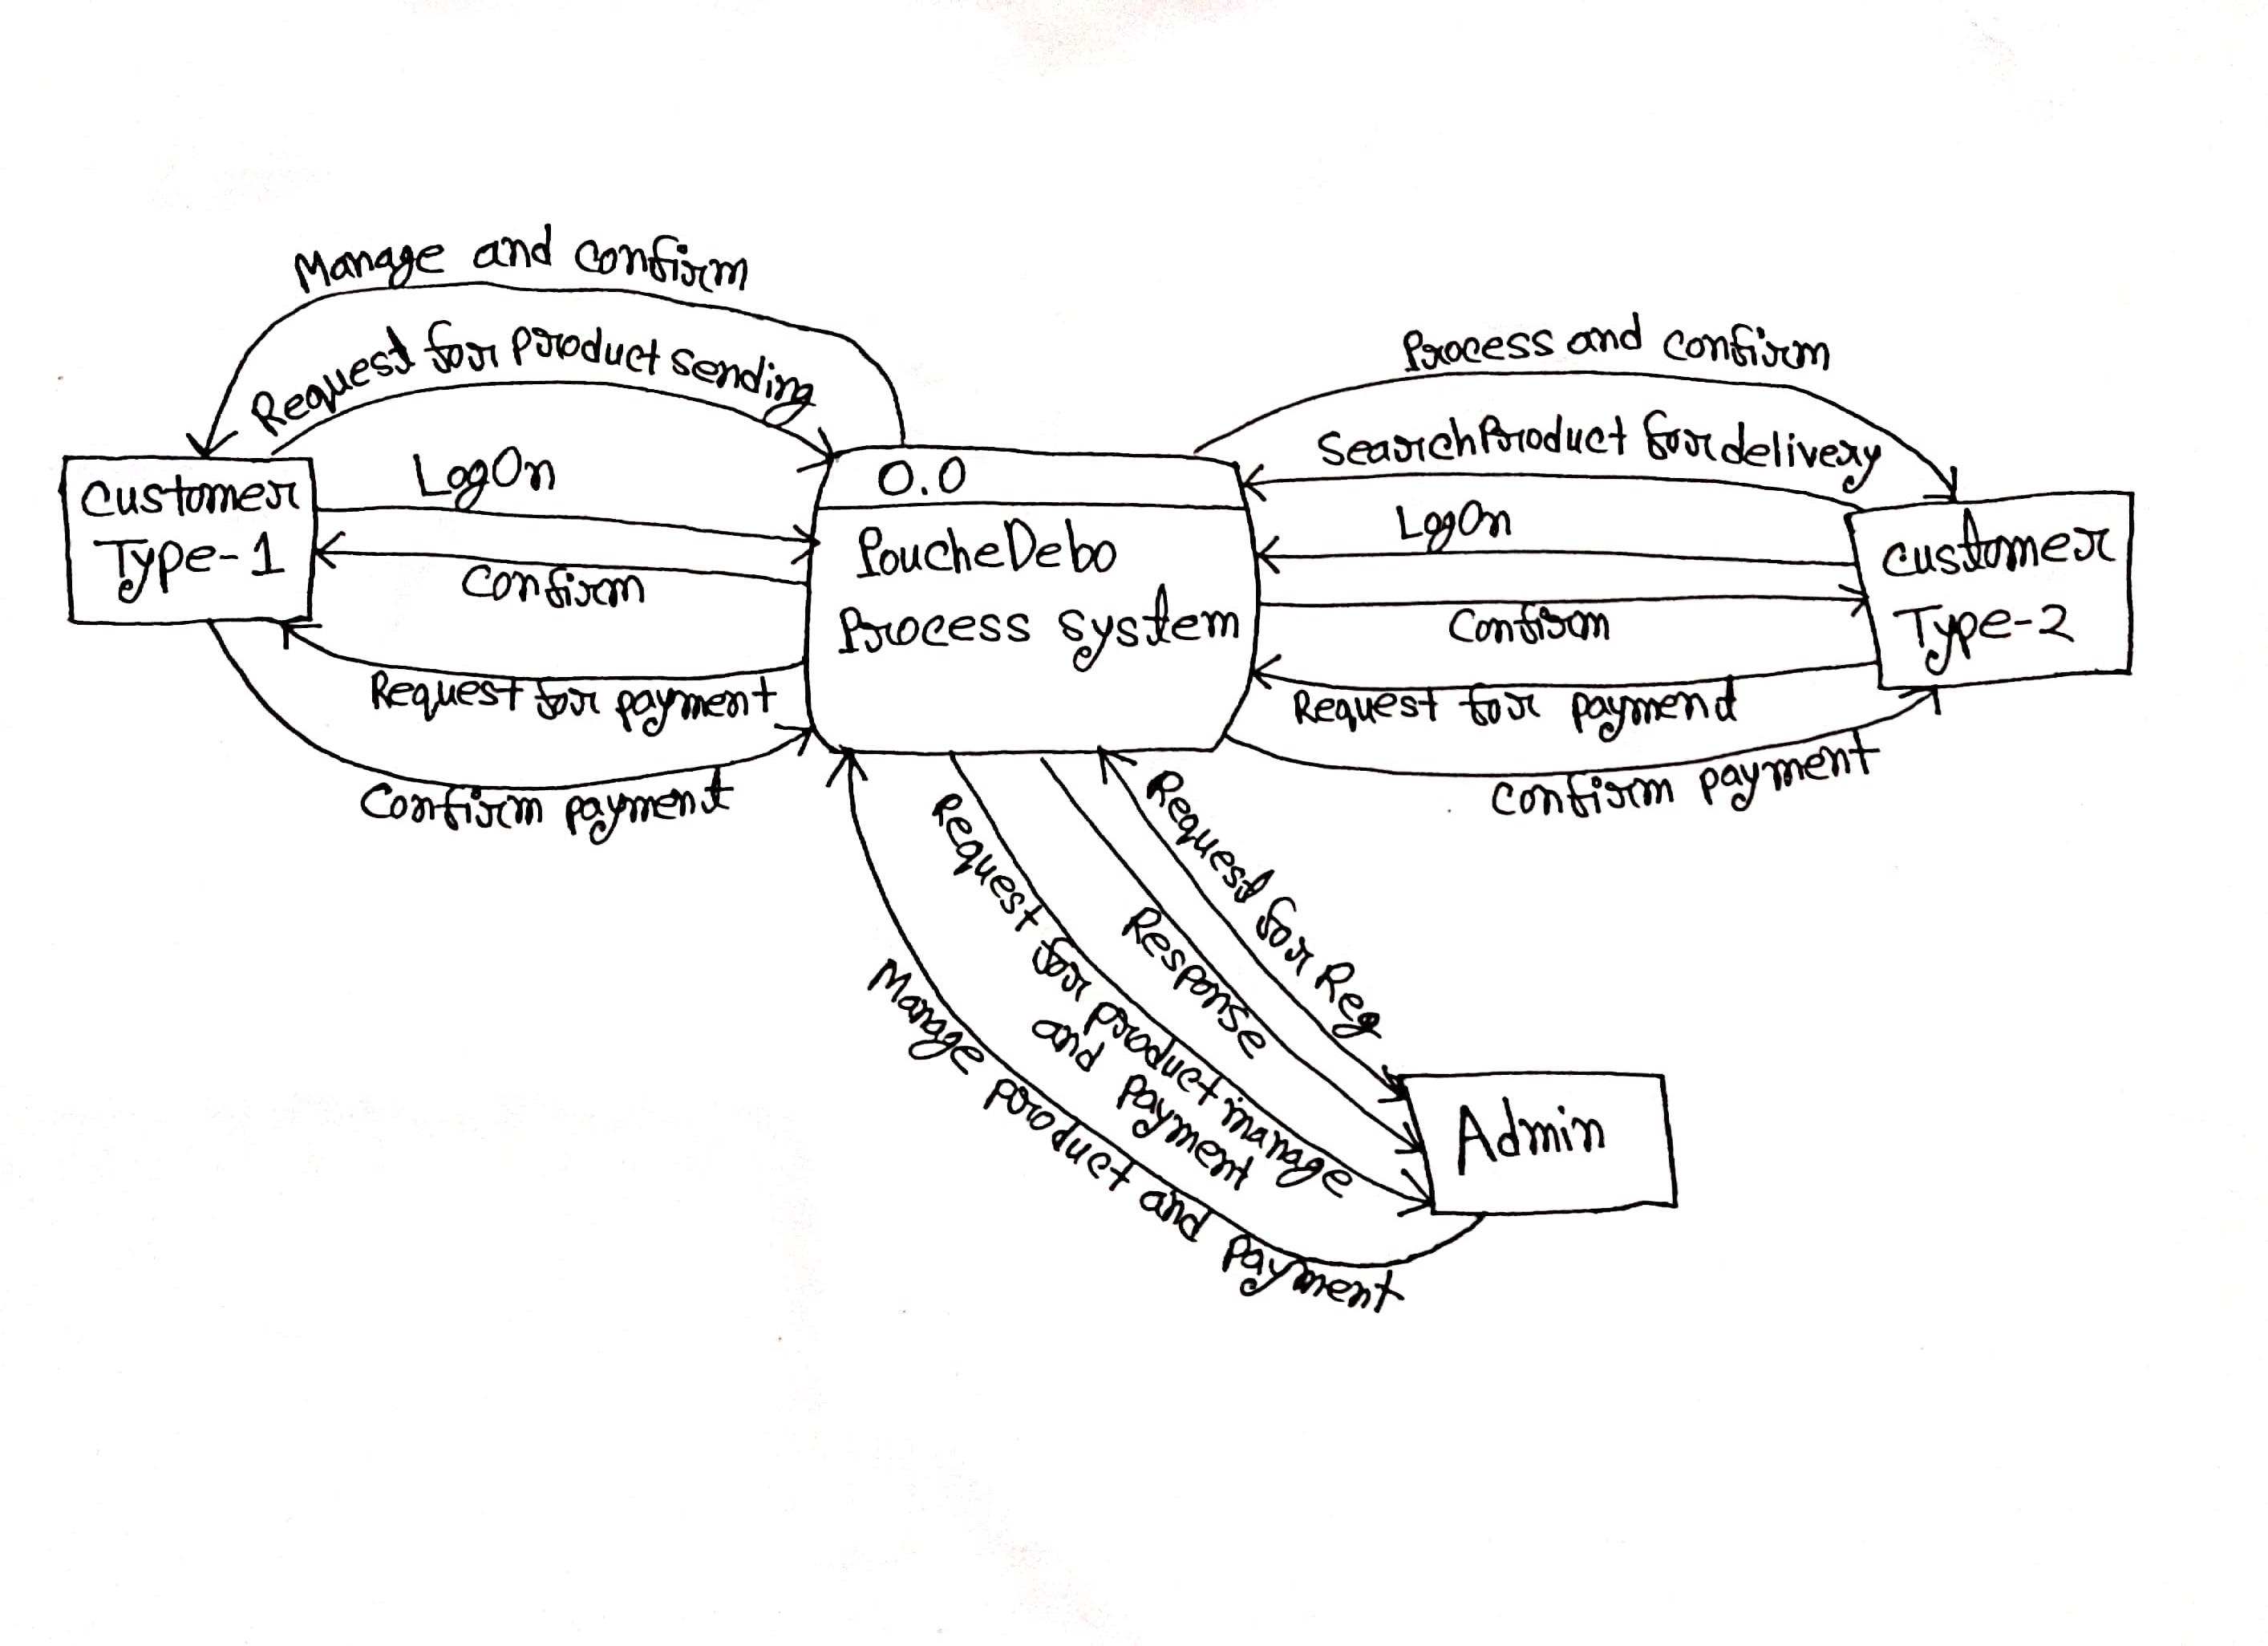 Manage and confirm
Request for product sending
LogOn
Confirm
Request for payment
Confirm payment
Customer
Type-1
0.0
PoucheDebo
Process system
Process and confirm
SearchProduct for delivery
LogOn
Confirm
Request for payment
Confirm payment
Customer
Type-2
Request for Reg
Response
Request for product manage
and payment
Manage product and payment
Admin